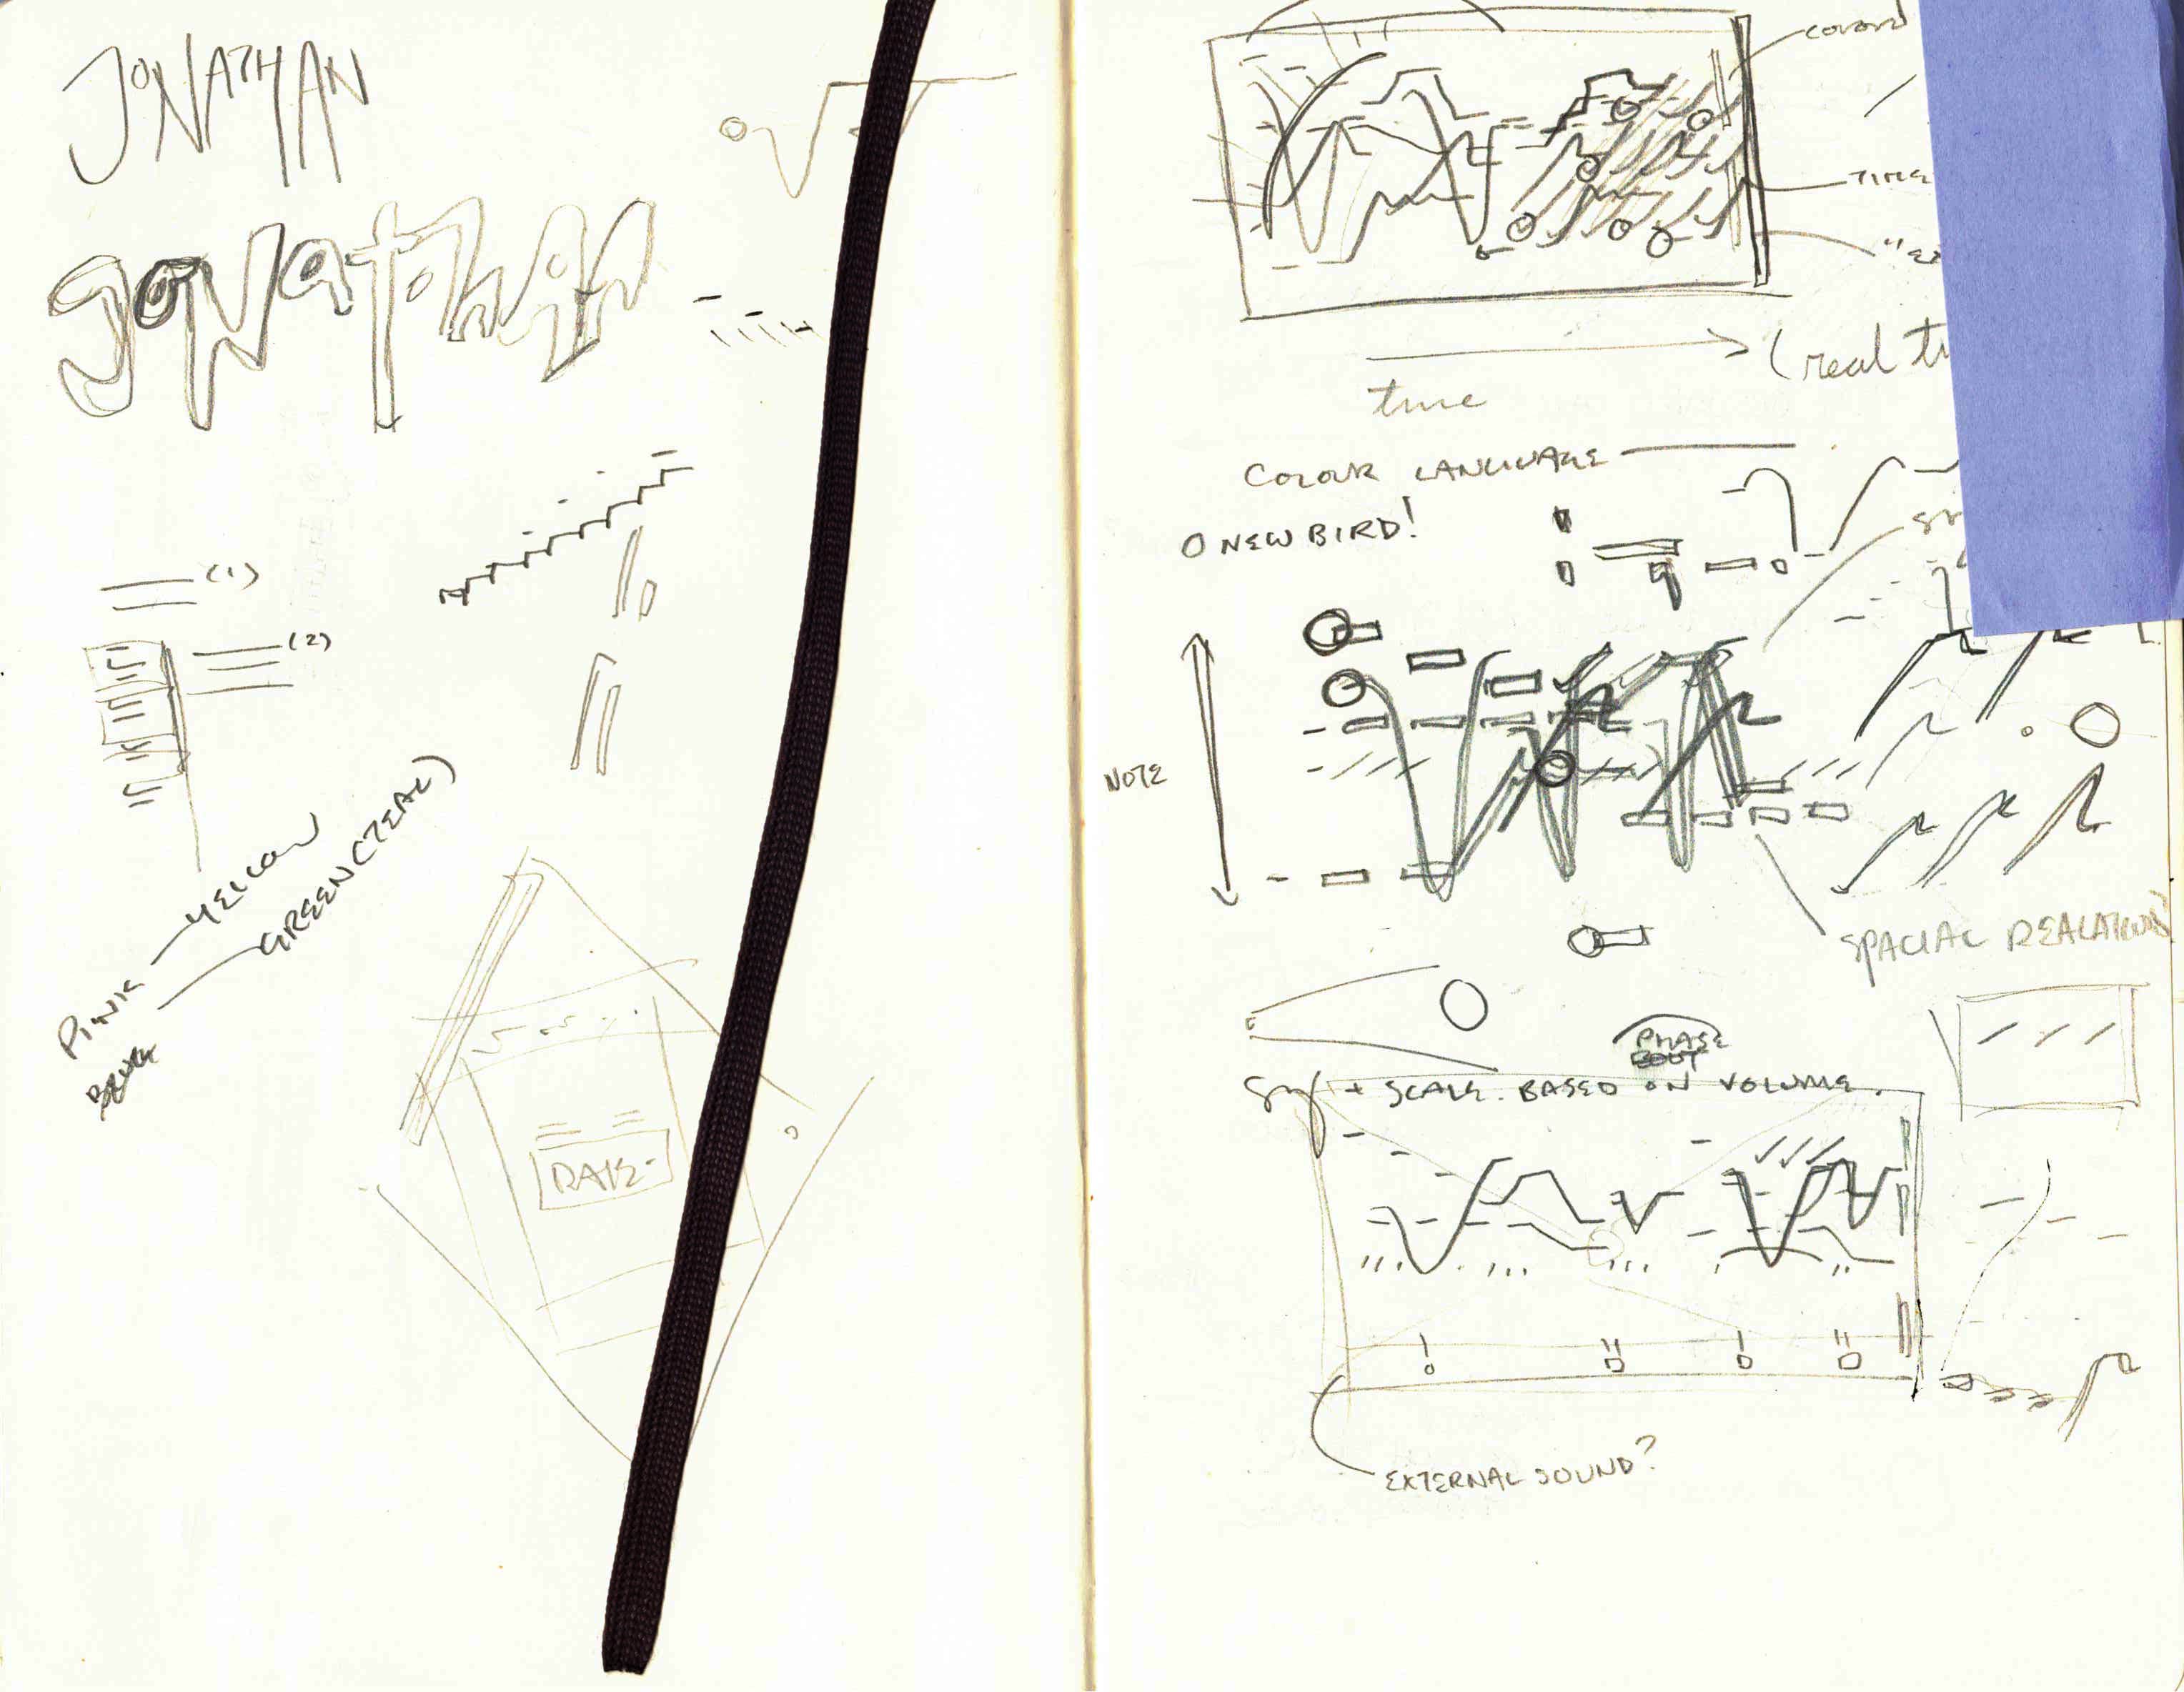 JONATHAN
JONATHAN
(1)
(2)
PINK — YELLOW
GREEN (TEAL)
DATE
TIME
time
(real ti
COLOUR LANGUAGE
O NEW BIRD!
NOTE
SPACIAL REALATIONS
PHASE
+ SCALE BASED ON VOLUME.
EXTERNAL SOUND?